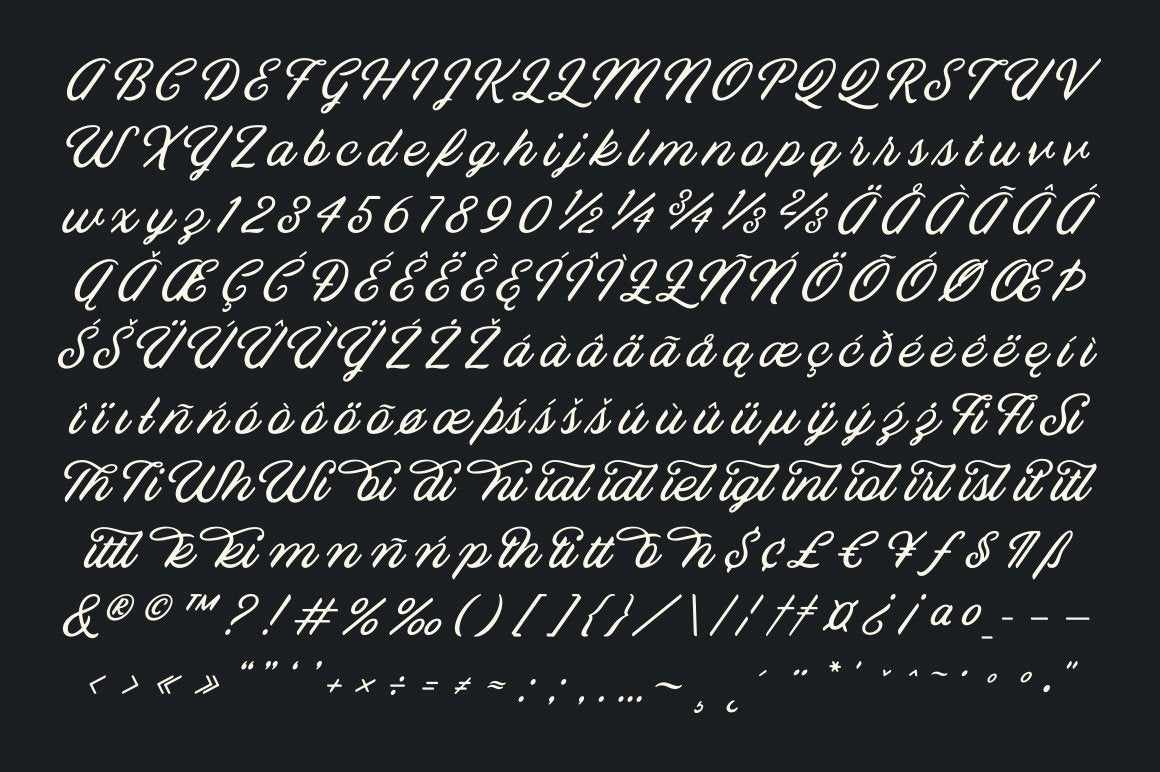 A B C D E F G H I J K L L M N O P Q Q R S T U V
W X Y Z a b c d e f g h i j k l m n o p q r r s s t u v v
w x y z 1 2 3 4 5 6 7 8 9 0 ½ ¼ ¾ ⅓ ⅔ Ä Å À Ã Â Á
Ą Ǎ Æ Ç Ć Đ É Ê Ë È Ę Í Î Ì Ł Ł Ñ Ń Ö Õ Ó Ø Œ Þ
Ś Š Ü Ú Û Ù Ÿ Ź Ż Ž á à â ä ã å ą æ ç ć ð é è ê ë ę í ì
î ï ı ł ñ ń ó ò ô ö õ ø œ þ ś ś š š ú ù û ü µ ÿ ý ź ż Fi Fl Si
Th Ti Wh Wi bi di hi ial idl iel igl inl iol irl isl it itl
ittl k ki m n ñ ń p th ti tt b h $ ¢ £ € ¥ ƒ § ¶ ß
& ® © ™ ? ! # % ‰ ( ) [ ] { } / \ | ¦ † ‡ ¤ ¿ ¡ a o _ - – —
‹ › « » “ ” ‘ ’ + × ÷ = ≠ ≈ : ; , . … ~ ¸ ˛ ´ ¨ * ' ˇ ^ ~ · ° ° . "